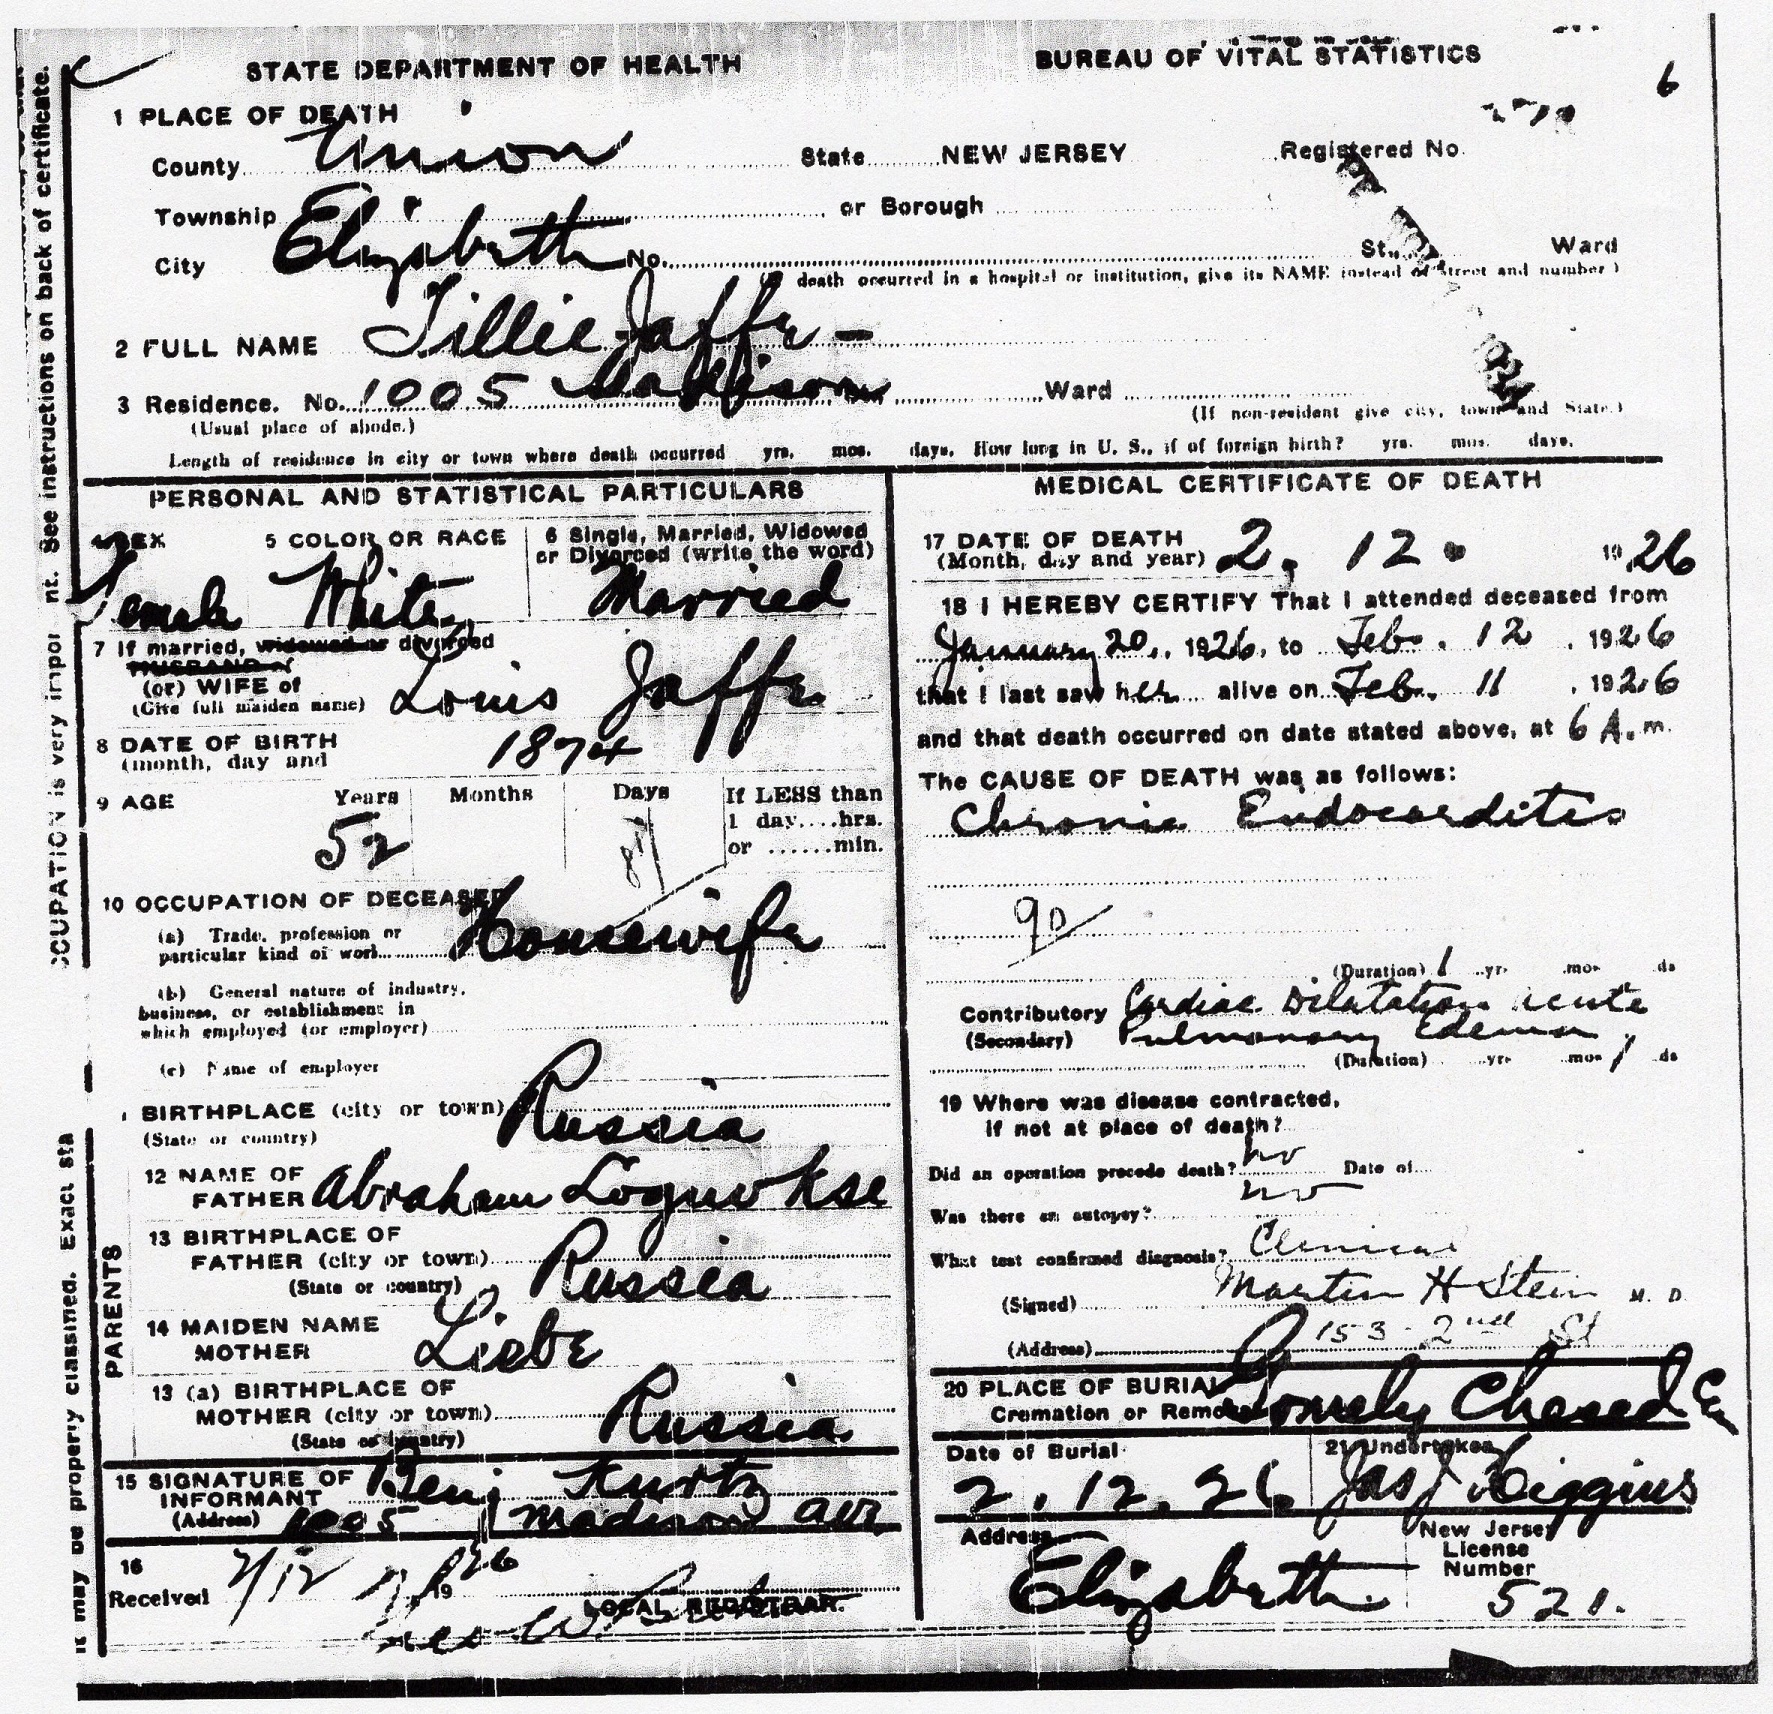 STATE DEPARTMENT OF HEALTH
BUREAU OF VITAL STATISTICS
6
1 PLACE OF DEATH
County Union State NEW JERSEY Registered No.
Township or Borough
City Elizabeth No. St. Ward
death occurred in a hospital or institution, give its NAME instead of street and number)
2 FULL NAME Tillie Jaffe -
3 Residence. No. 1005 Madison Ward
(Usual place of abode.) (If non-resident give city, town and State.)
Length of residence in city or town where death occurred yrs. mos. days. How long in U. S., if of foreign birth? yrs. mos. days.
PERSONAL AND STATISTICAL PARTICULARS
4 SEX 5 COLOR OR RACE 6 Single, Married, Widowed
or Divorced (write the word)
Female White Married
7 If married, widowed or divorced
HUSBAND of
(or) WIFE of Louis Jaffe
(Give full maiden name)
8 DATE OF BIRTH 1874
(month, day and
9 AGE Years Months Days If LESS than
1 day....hrs.
52 or ......min.
10 OCCUPATION OF DECEASED
(a) Trade, profession or
particular kind of work Housewife
(b) General nature of industry,
business, or establishment in
which employed (or employer)
(c) Name of employer
BIRTHPLACE (city or town)
(State or country) Russia
12 NAME OF
FATHER Abraham
13 BIRTHPLACE OF
FATHER (city or town)
(State or country) Russia
14 MAIDEN NAME
MOTHER Liebe
13 (a) BIRTHPLACE OF
MOTHER (city or town)
(State or country) Russia
PARENTS
15 SIGNATURE OF
INFORMANT Benj Kurtz
(Address) 1005 Madison ave
16
Received 2/12 1926
LOCAL REGISTRAR.
MEDICAL CERTIFICATE OF DEATH
17 DATE OF DEATH
(Month, day and year) 2. 12. 1926
18 I HEREBY CERTIFY That I attended deceased from
January 20, 1926, to Feb. 12, 1926
that I last saw her alive on Feb. 11, 1926
and that death occurred on date stated above, at 6 A. m.
The CAUSE OF DEATH was as follows:
Chronic Endocarditis
90
(Duration) 1 yr. mos. ds
Contributory Cardiac Dilatation acute
(Secondary) Pulmonary Edema
(Duration) yrs. mos. 1 ds
19 Where was disease contracted,
if not at place of death?
Did an operation precede death? no Date of
Was there an autopsy? no
What test confirmed diagnosis? Clinical
(Signed) Martin H Stein M. D.
(Address) 153 - 2nd St
20 PLACE OF BURIAL
Cremation or Removal Gomely Chesed Cem
Date of Burial 21 Undertaker
2. 12. 26 Jas J Higgins
Address New Jersey
License
Number
Elizabeth. 521.
See instructions on back of certificate.
OCCUPATION is very impor nt.
it may be properly classified. Exact sta